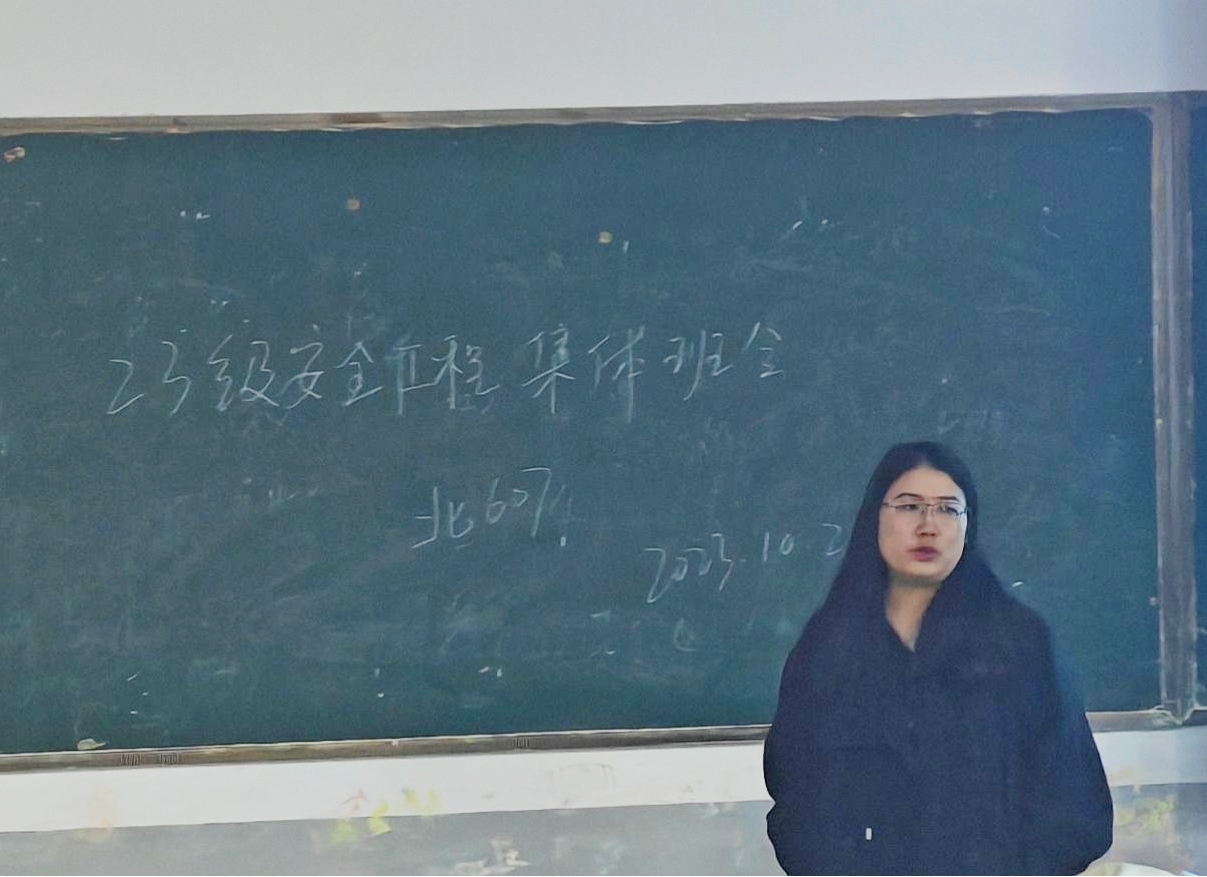 23级安全工程集体班会
北607
2023.10.2